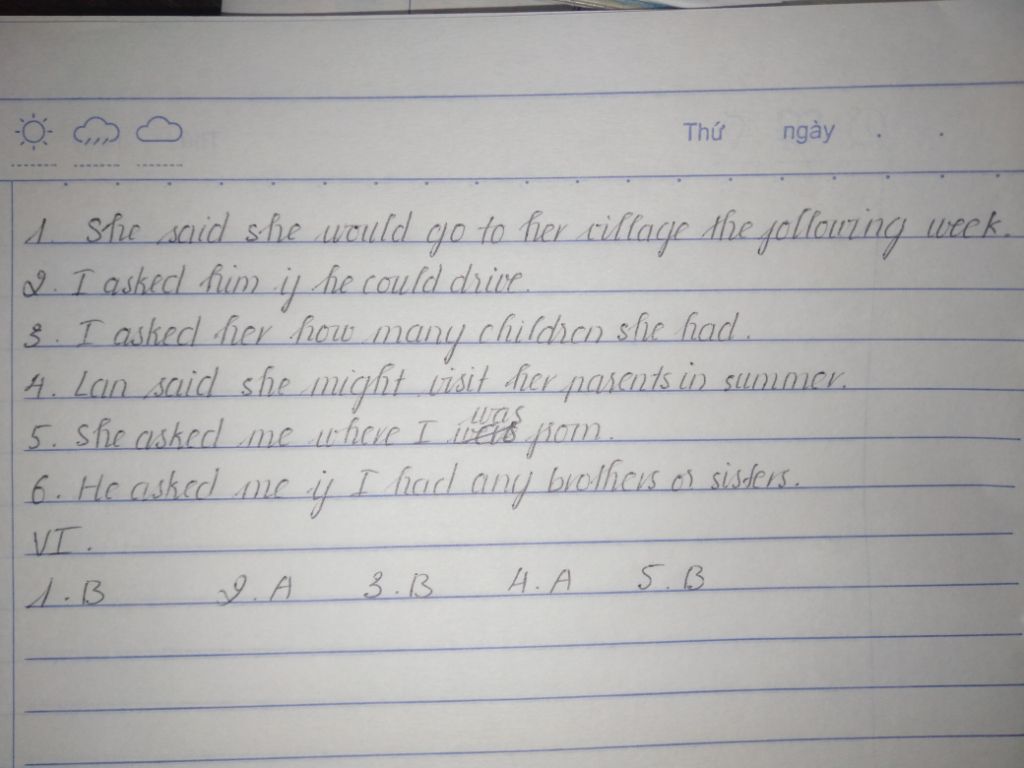 Thứ ngày . .
1. She said she would go to her village the following week.
2. I asked him if he could drive.
3. I asked her how many children she had.
4. Lan said she might visit her parents in summer.
was
5. She asked me where I were from.
6. He asked me if I had any brothers or sisters.
VI.
1. B 2. A 3. B 4. A 5. B